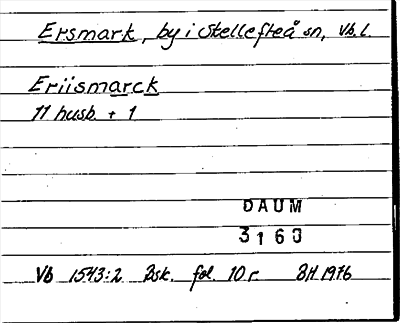 Ersmark, by i Skellefteå sn, Vb. l.
Eriismarck
11 husb. + 1
DAUM
3160
Vb 1543:2 Bsk. fol. 10 r. BH 1976